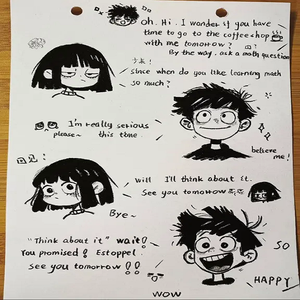 oh. Hi. I wonder if you have
time to go to the coffee shop
with me tomorrow?
By the way. ask a math question
since when do you like learning math
so much?
I'm really serious
please~ this time.
believe
me!
will I'll think about it.
See you tomorrow
Bye~
"Think about it" wait!
You promised! Estoppel.
See you tomorrow!!
SO
HAPPY
WOW